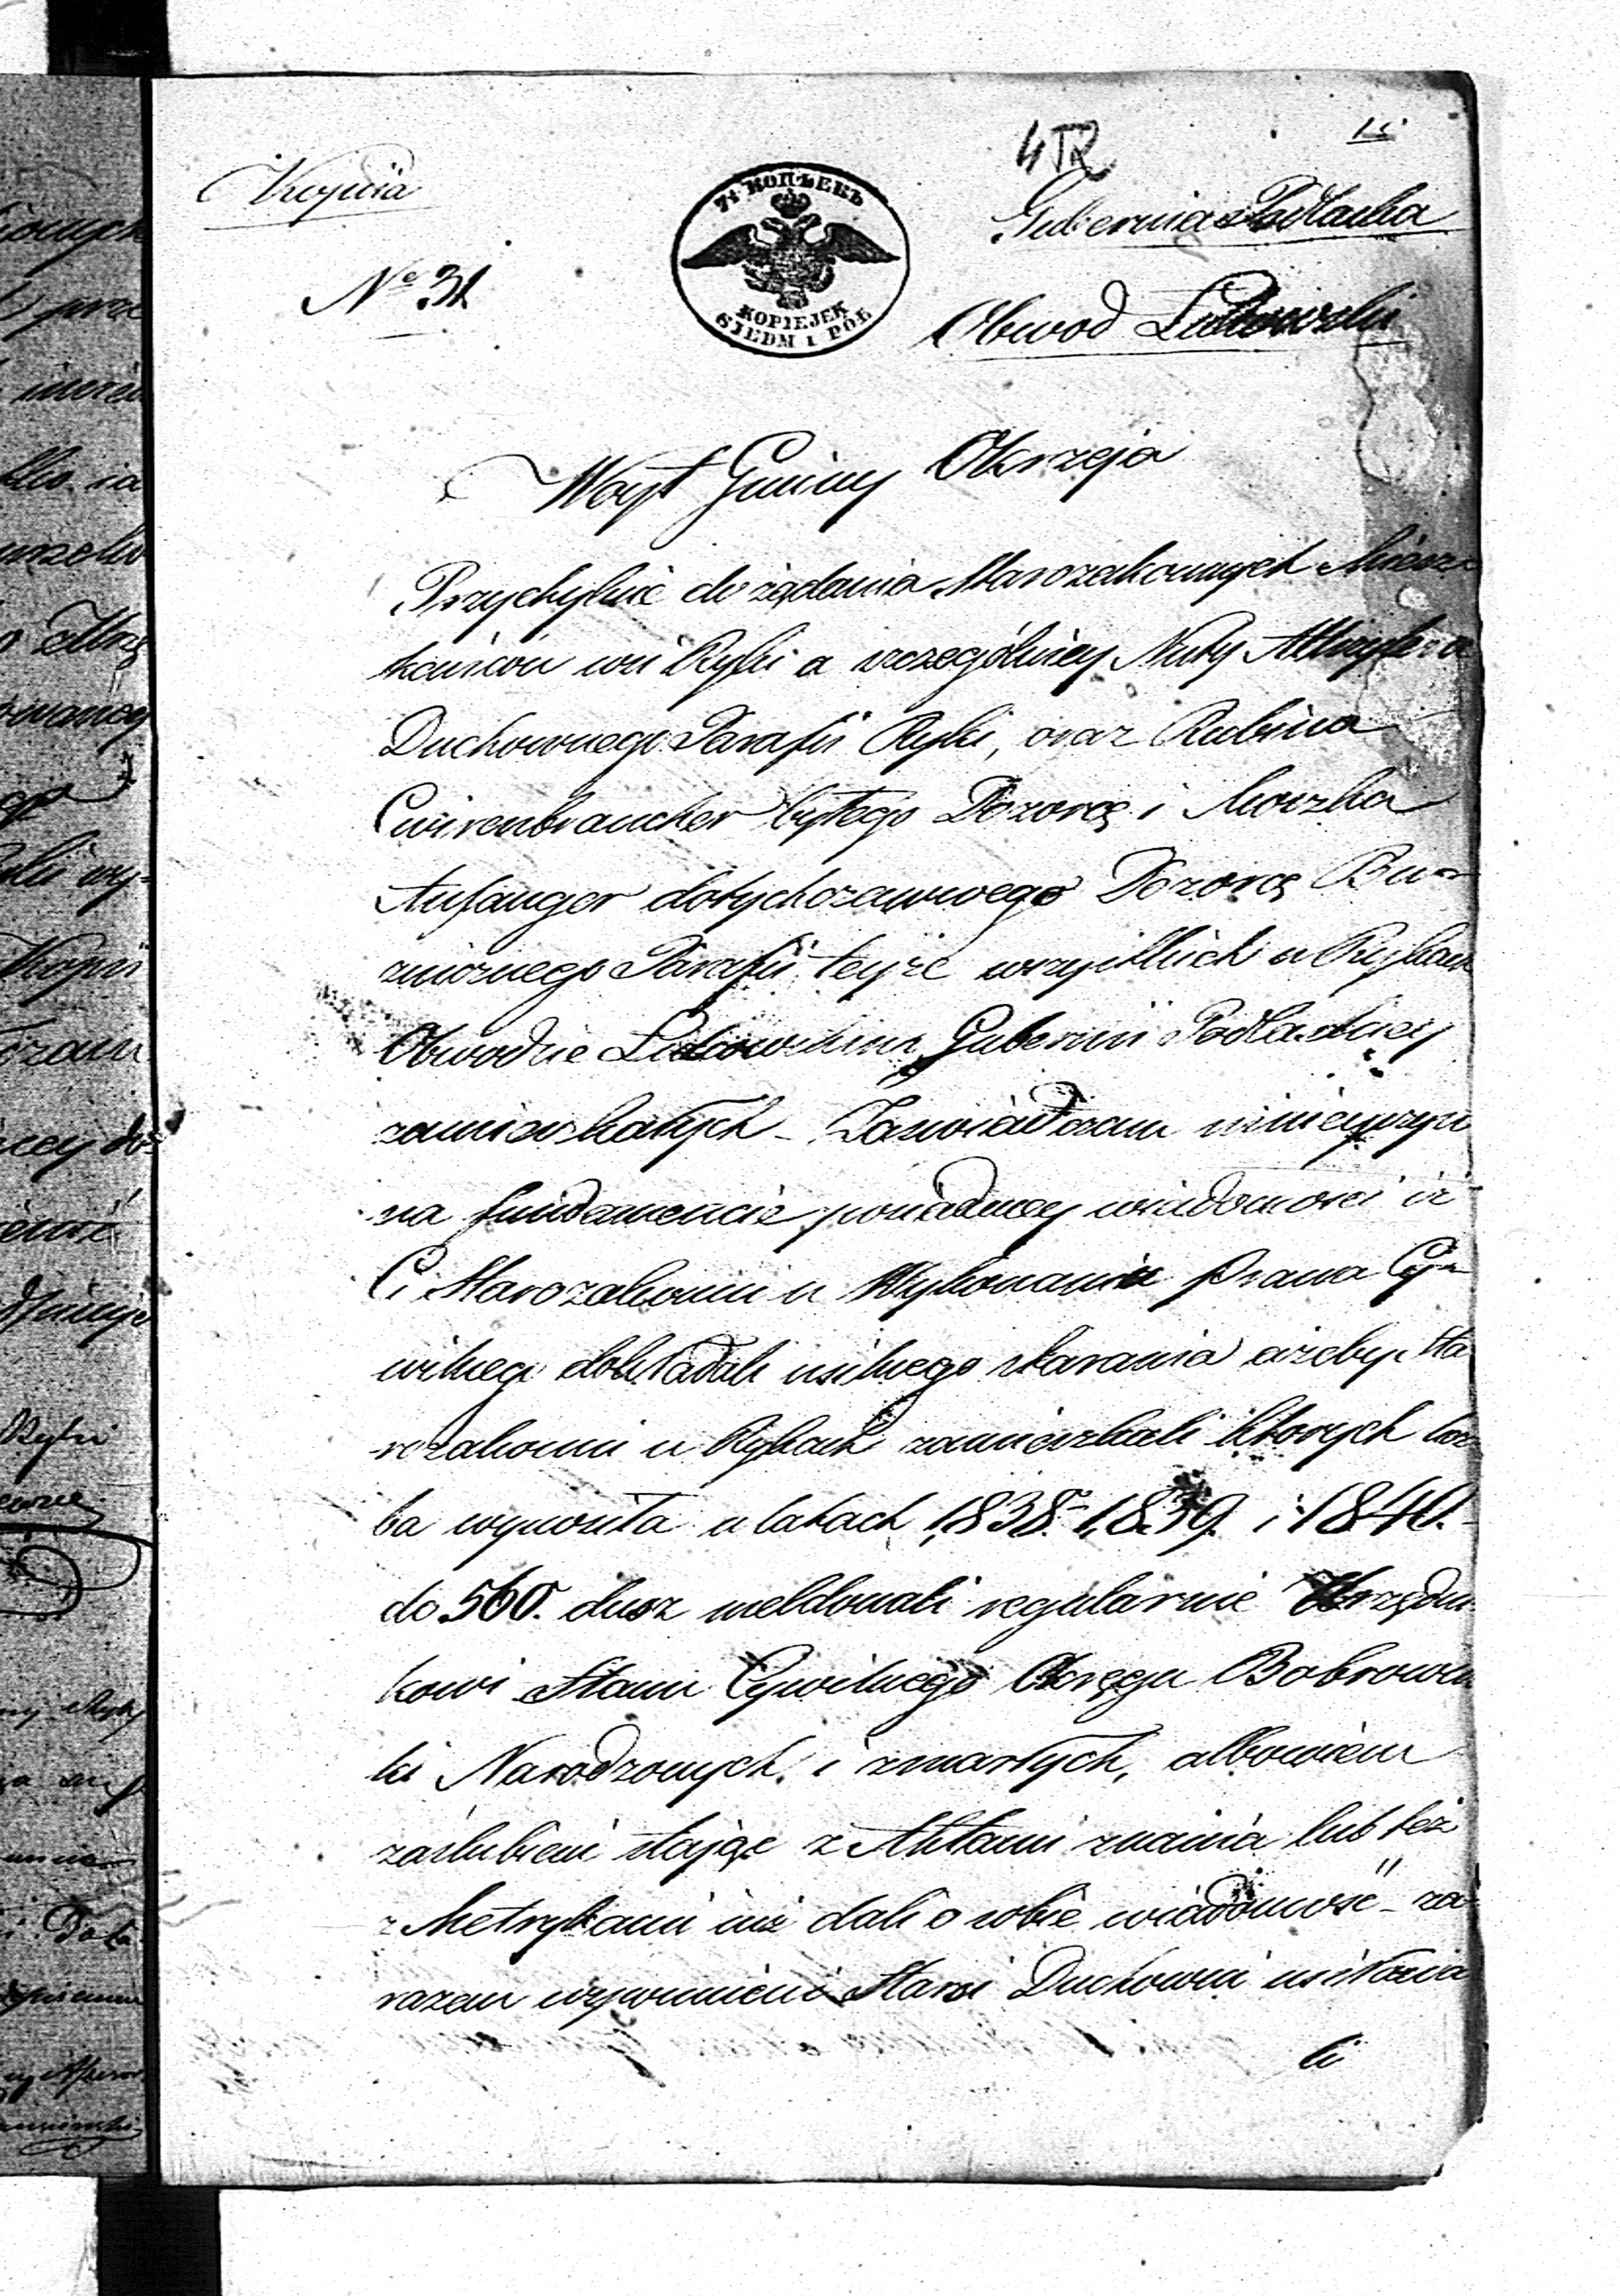 Kopiia
No 31
7½ КОПѢЕКЪ
KOPIEJEK
SIEDM i PÓŁ
4
15
Gubernia Podlaska
Obwod Łukowski
Woyt Gminy Okrzeja
Przychylnie do żądania Starozakonnych Miesz-
kańców wsi Ryki a szczególniey Nuty
Duchownego Parafii Ryki, oraz Rubina
Cwirenbraucher byłego Dozorcę i Moszka
Anfanger dotychczasowego Dozorcę Bu-
żniczego Parafii teyże wszystkich w Rykach
Obwodzie Łukowskim Gubernii Podlaskiey
zamieszkałych – Zaswiadczam ninieyszym
na fundamencie posiadaney wiadomości iż
Ci Starozakonni w Wykonaniu Prawa Cy-
wilnego dokładali usilnego starania ażeby Sta
rozakonni w Rykach zamieszkali ktorych licz
ba wynosiła w latach 1838. 1839. i 1840.
do 560. dusz meldowali regularnie Urzędni
kowi Stanu Cywilnego Okręgu Bobrowni
ki Narodzonych i zmarłych, albowiem
zaslubieni stając z Aktami znania lub też
z Metrykami już dali o sobie wiadomość – za
razem wspomnieni Starsi Duchowni usiłowa
li